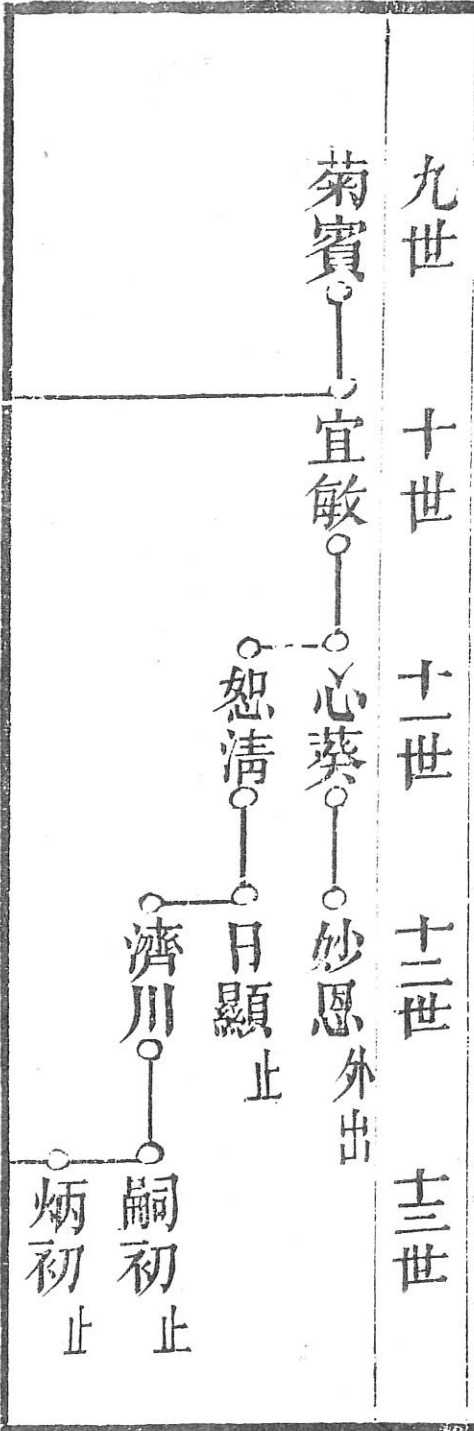 九世
十世
十一世
十二世
十三世
菊賓
宜敏
心葵
妙恩 外出
恕清
日顯 止
濟川
嗣初 止
炳初 止